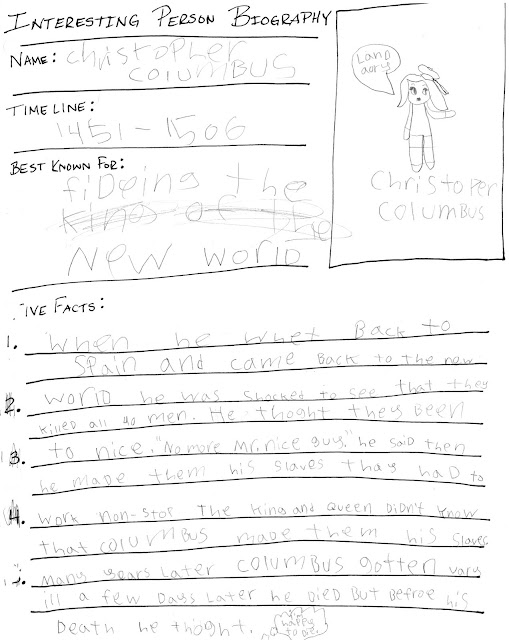 INTERESTING PERSON BIOGRAPHY
NAME: Christopher
COLUMBUS
TIME LINE:
1451-1506
BEST KNOWN FOR:
fiDeing the
King of the
New world
Land
aory
Christoper
Columbus
IVE FACTS:
1. When he whet Back to
Spain and came Back to the new
2. World he was shocked to see that they
killed all 40 men. He thoght they been
3. to nice. "No more Mr. nice guy." he said then
he made them his slaves thay had to
4. work non-stop the King and Queen Didn't know
that COLUMBUS made them his slaves
Many years later COLUMBUS gotten vary
ill a few Days Later he Died But Befroe his
Death he thoght.
happy
to Die.